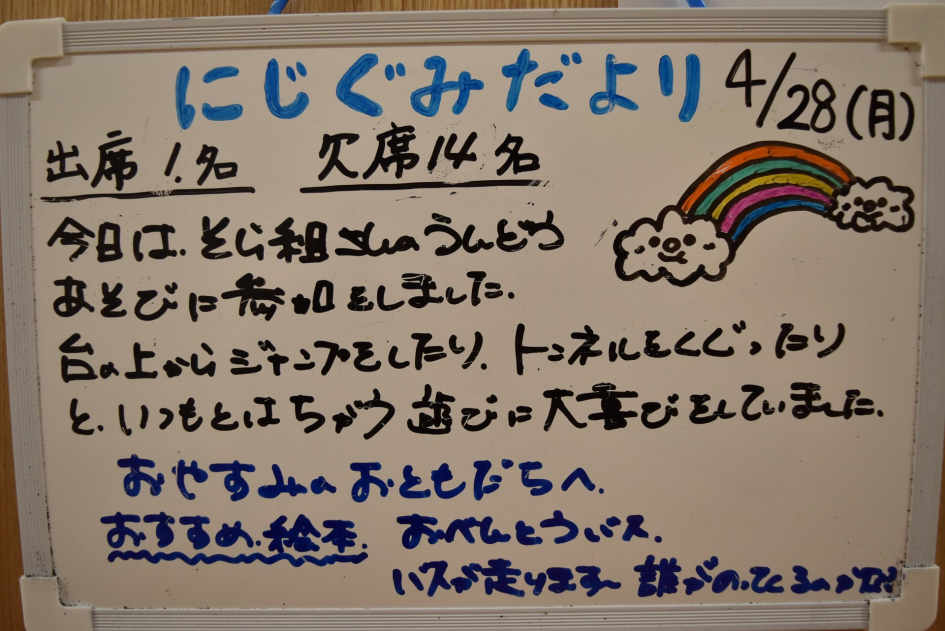 にじぐみだより 4/28(月)
出席 1名 欠席 14名
今日は、そら組さんのうんどう
あそびに参加をしました。
台の上からジャンプをしたり、トンネルをくぐったり
と、いつもとはちがう遊びに大喜びをしていました。
おやすみのおともだちへ。
おすすめ絵本 おべんとうバス。
バスが走ります〜 誰がのってくるのかな?